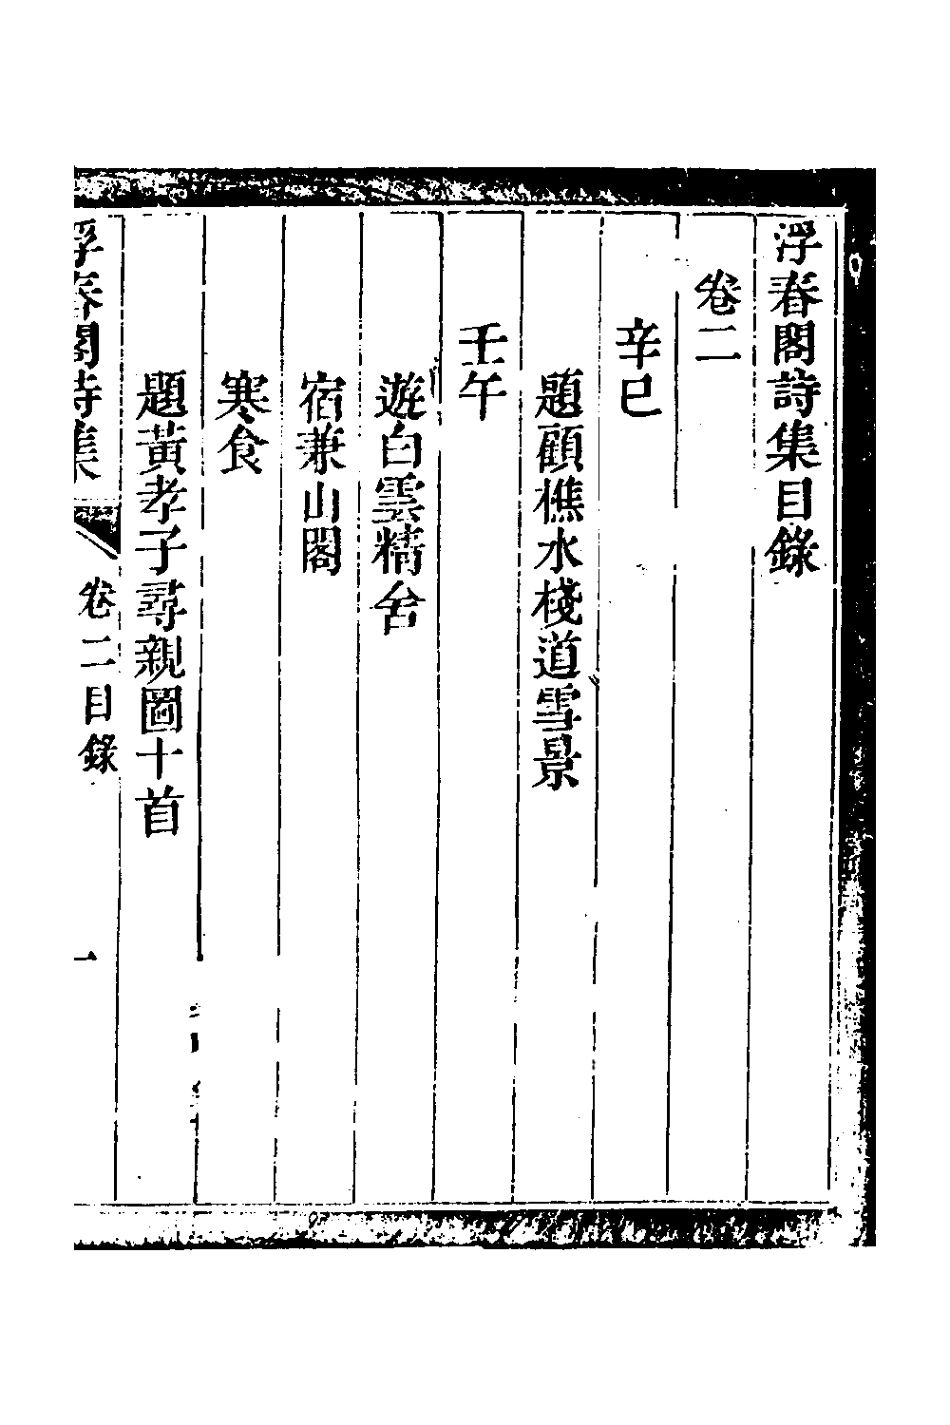 浮春閣詩集目錄
卷二
辛巳
題顧樵水棧道雪景
壬午
遊白雲精舍
宿兼山閣
寒食
題黃孝子尋親圖十首
浮春閣詩集 卷二目錄 一